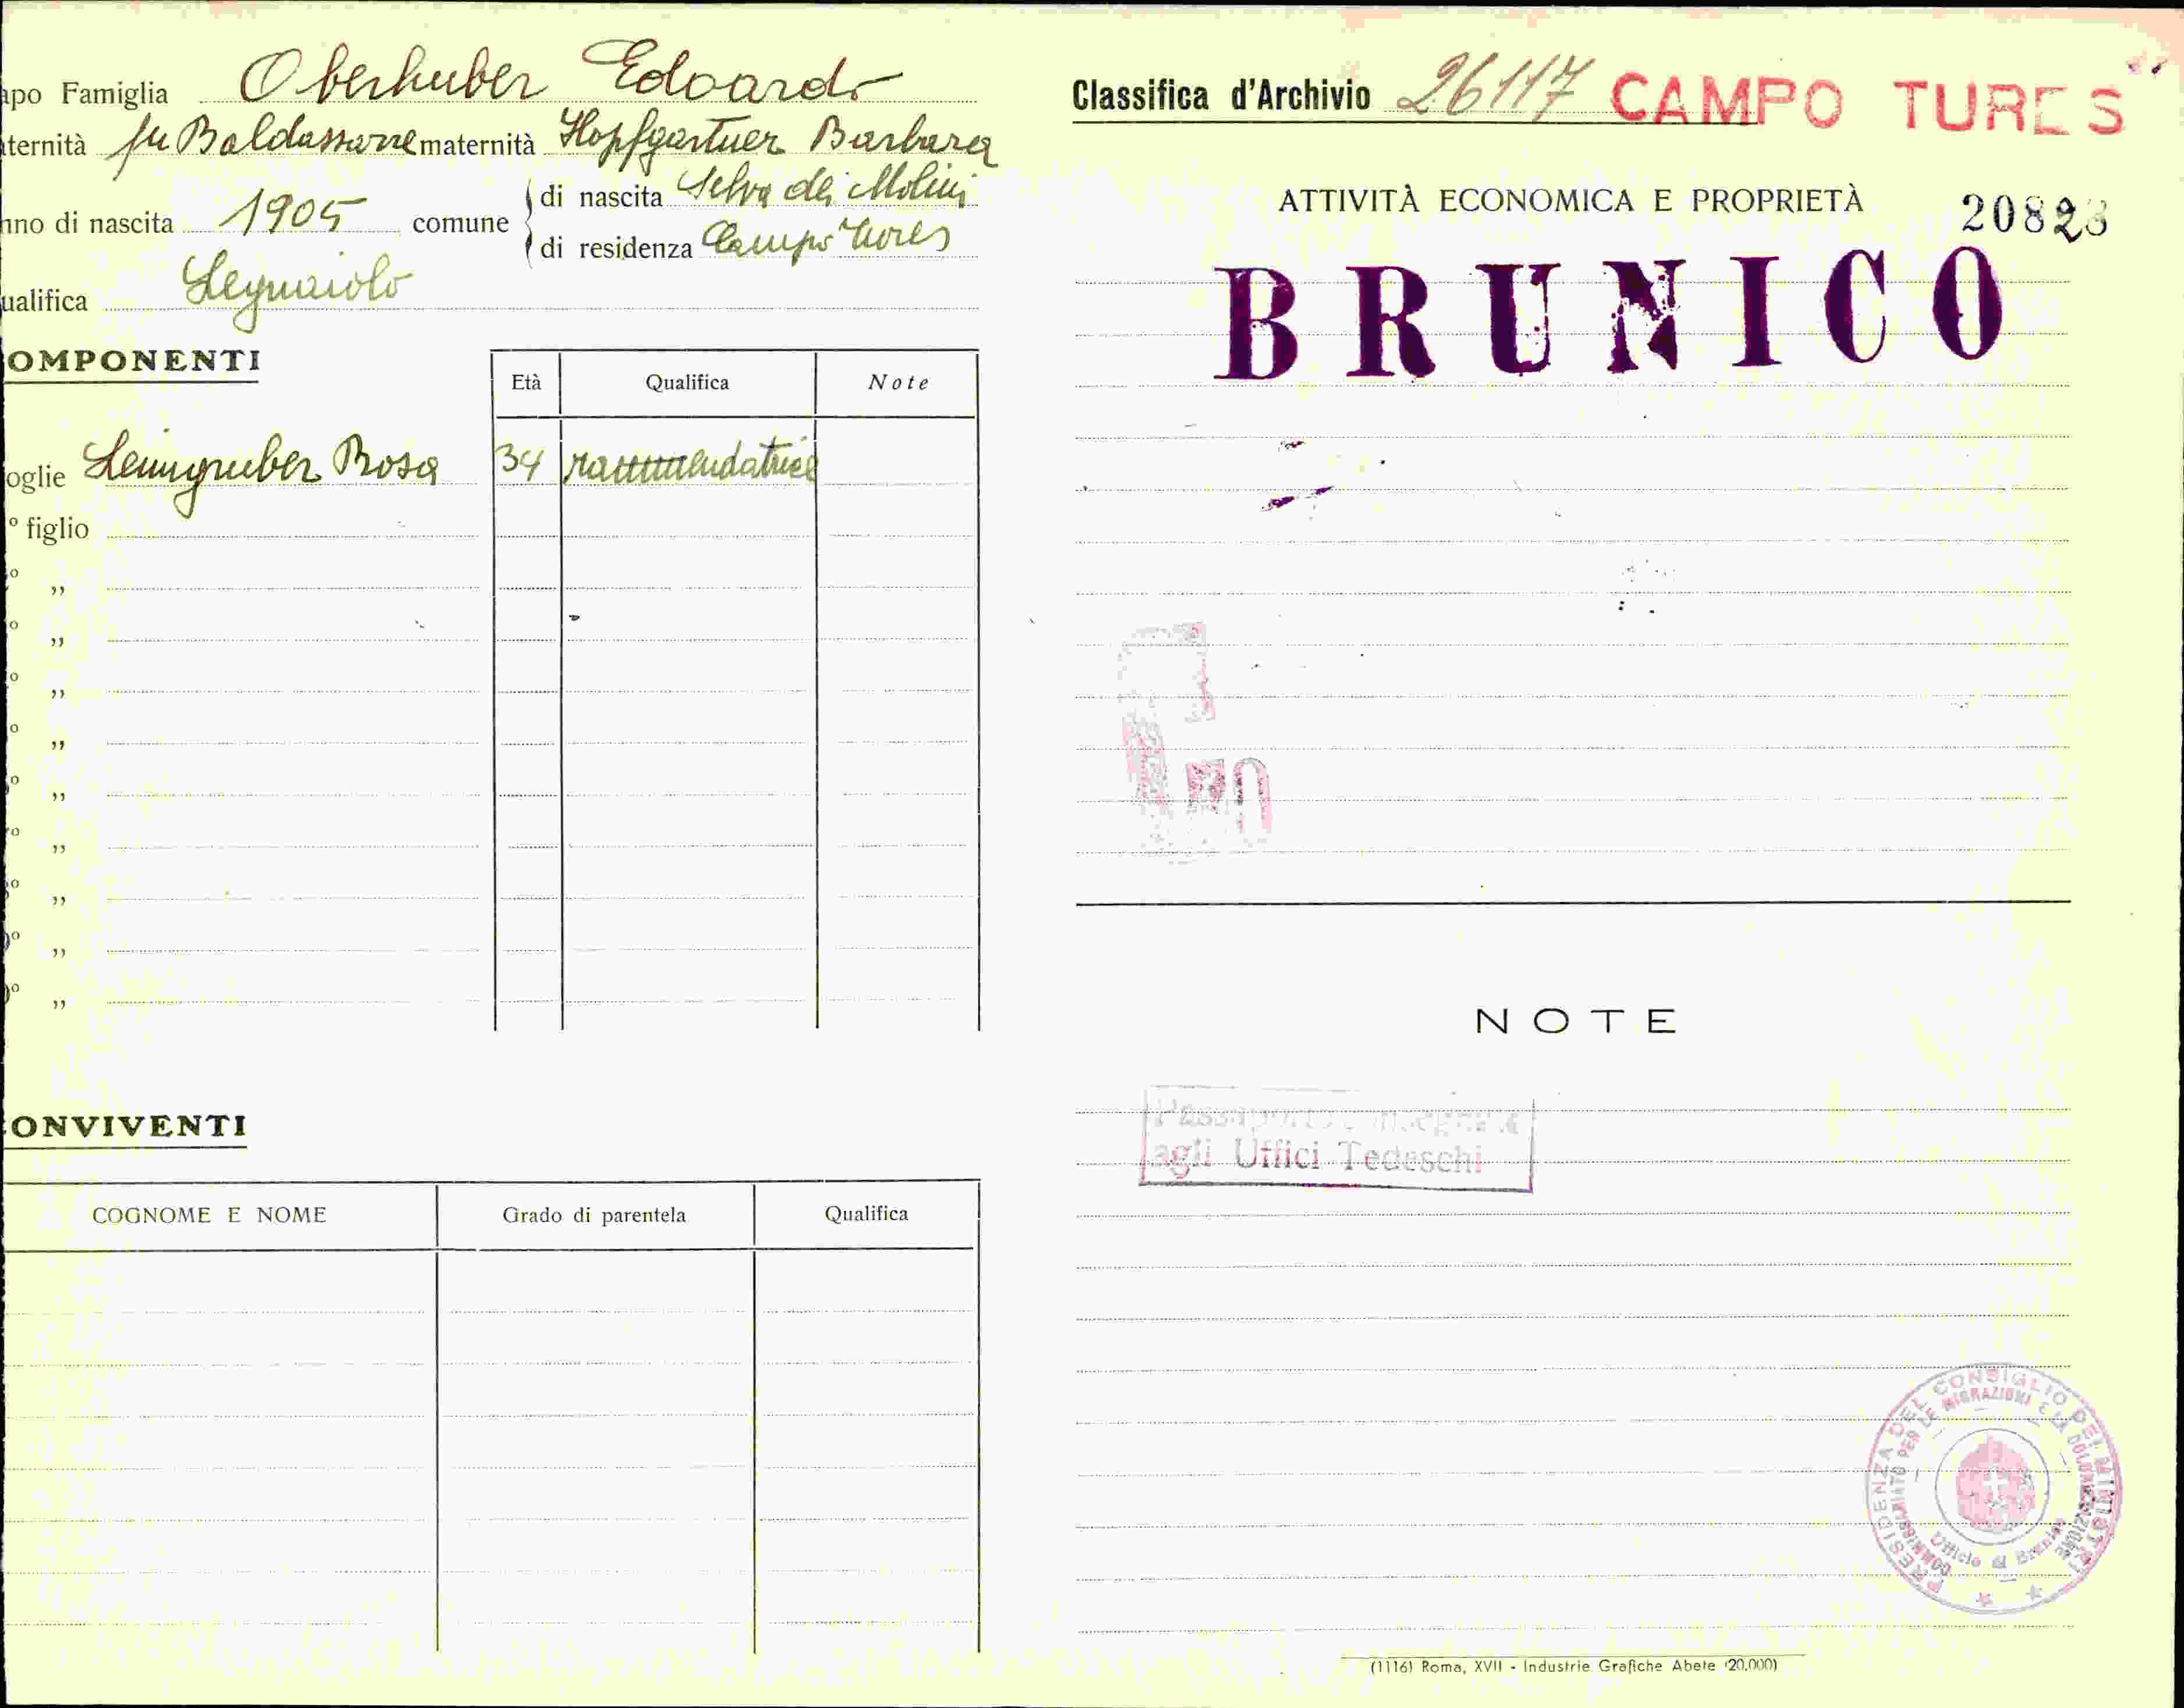 apo Famiglia Oberhuber Edoardo
ternità fu Baldassarre maternità Hopfgartner Barbara
nno di nascita 1905 comune di nascita Selva dei Molini
di residenza Campo Tures
ualifica Legnaiolo
OMPONENTI
Età Qualifica Note
oglie Leimgruber Rosa 34 rammendatrice
º figlio
º „
º „
º „
º „
º „
º „
º „
º „
º „
ONVIVENTI
COGNOME E NOME Grado di parentela Qualifica
Classifica d'Archivio 26117 CAMPO TURES
ATTIVITÀ ECONOMICA E PROPRIETÀ 20823
BRUNICO
NOTE
agli Uffici Tedeschi
PRESIDENZA DEL CONSIGLIO DEI MINISTRI
COMMISSARIATO PER LE MIGRAZIONI E LA COLONIZZAZIONE
Ufficio di Brunico
(1116) Roma, XVII - Industrie Grafiche Abete (20.000)